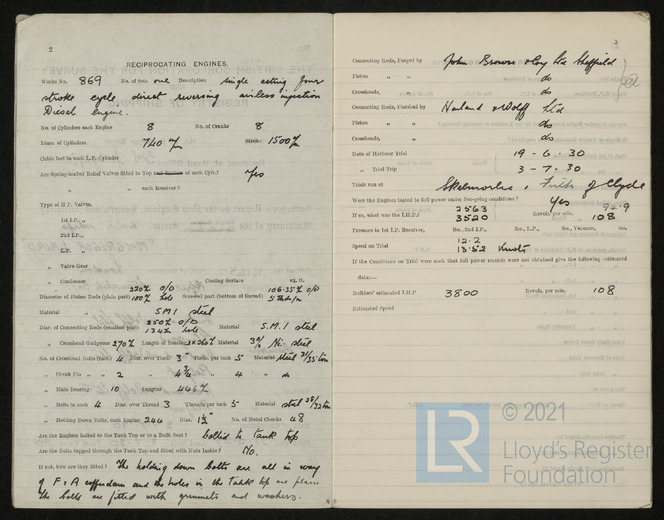 2
RECIPROCATING ENGINES.
Works No. 869 No. of Sets one Description single acting four
stroke cycle direct reversing airless injection
Diesel engine.
No. of Cylinders each Engine 8 No. of Cranks 8
Diars. of Cylinders 740 m/m Stroke 1500 m/m
Cubic feet in each L.P. Cylinder
Are Spring-loaded Relief Valves fitted to Top and Bottom of each Cylr.? Yes
" " each Receiver?
Type of H.P. Valves,
1st I.P. "
2nd I.P. "
L.P. "
" Valve Gear
" Condenser Cooling Surface sq. ft.
Diameter of Piston Rods (plain part) 220 O/D Screwed part (bottom of thread)
Material S.M.I. steel
Diar. of Connecting Rods (smallest part) Material S.M.I. steel
" Crosshead Gudgeons 270 Length of Bearing 2x260 Material 3% Ni steel
No. of Crosshead Bolts (each) 4 Diar. over Thrd. 3" Thrds. per inch 5 Material steel
" Crank Pin " " 2 " 4 3/4 " 4 " do
" Main Bearings 10 Lengths 446
" Bolts in each 4 Diar. over Thread 3 Threads per inch 5 Material steel
" Holding Down Bolts, each Engine 244 Diar. No. of Metal Chocks 48
Are the Engines bolted to the Tank Top or to a Built Seat? bolted to tank top
Are the Bolts tapped through the Tank Top and fitted with Nuts Inside? No.
If not, how are they fitted? The holding down bolts are all in way
of F & A cofferdam and the holes in the tank top are plain
the bolts are fitted with grummets and washers.
3
Connecting Rods, Forged by John Brown & Coy Ltd Sheffield
Piston " " do
Crossheads, " do
Connecting Rods, Finished by Harland & Wolff Ltd
Piston " " do
Crossheads, " do
Date of Harbour Trial 19 - 6 - 30
" Total Trip 3 - 7 - 30
Trials run at Skelmorlie, Firth of Clyde
Were the Engines tested to full power under Sea-going conditions? Yes
2563 94.9
If so, what was the I.H.P.? 3520 Revols. per min. 108
Pressure in 1st I.P. Receiver, lbs., 2nd I.P., lbs., L.P., lbs., Vacuum, ins.
12.2
Speed on Trial 13.52 Knots
If the Conditions on Trial were such that full power records were not obtained give the following estimated
data:—
Builders' estimated I.H.P. 3800 Revols. per min. 108
Estimated Speed
LR
© 2021
Lloyd's Register
Foundation